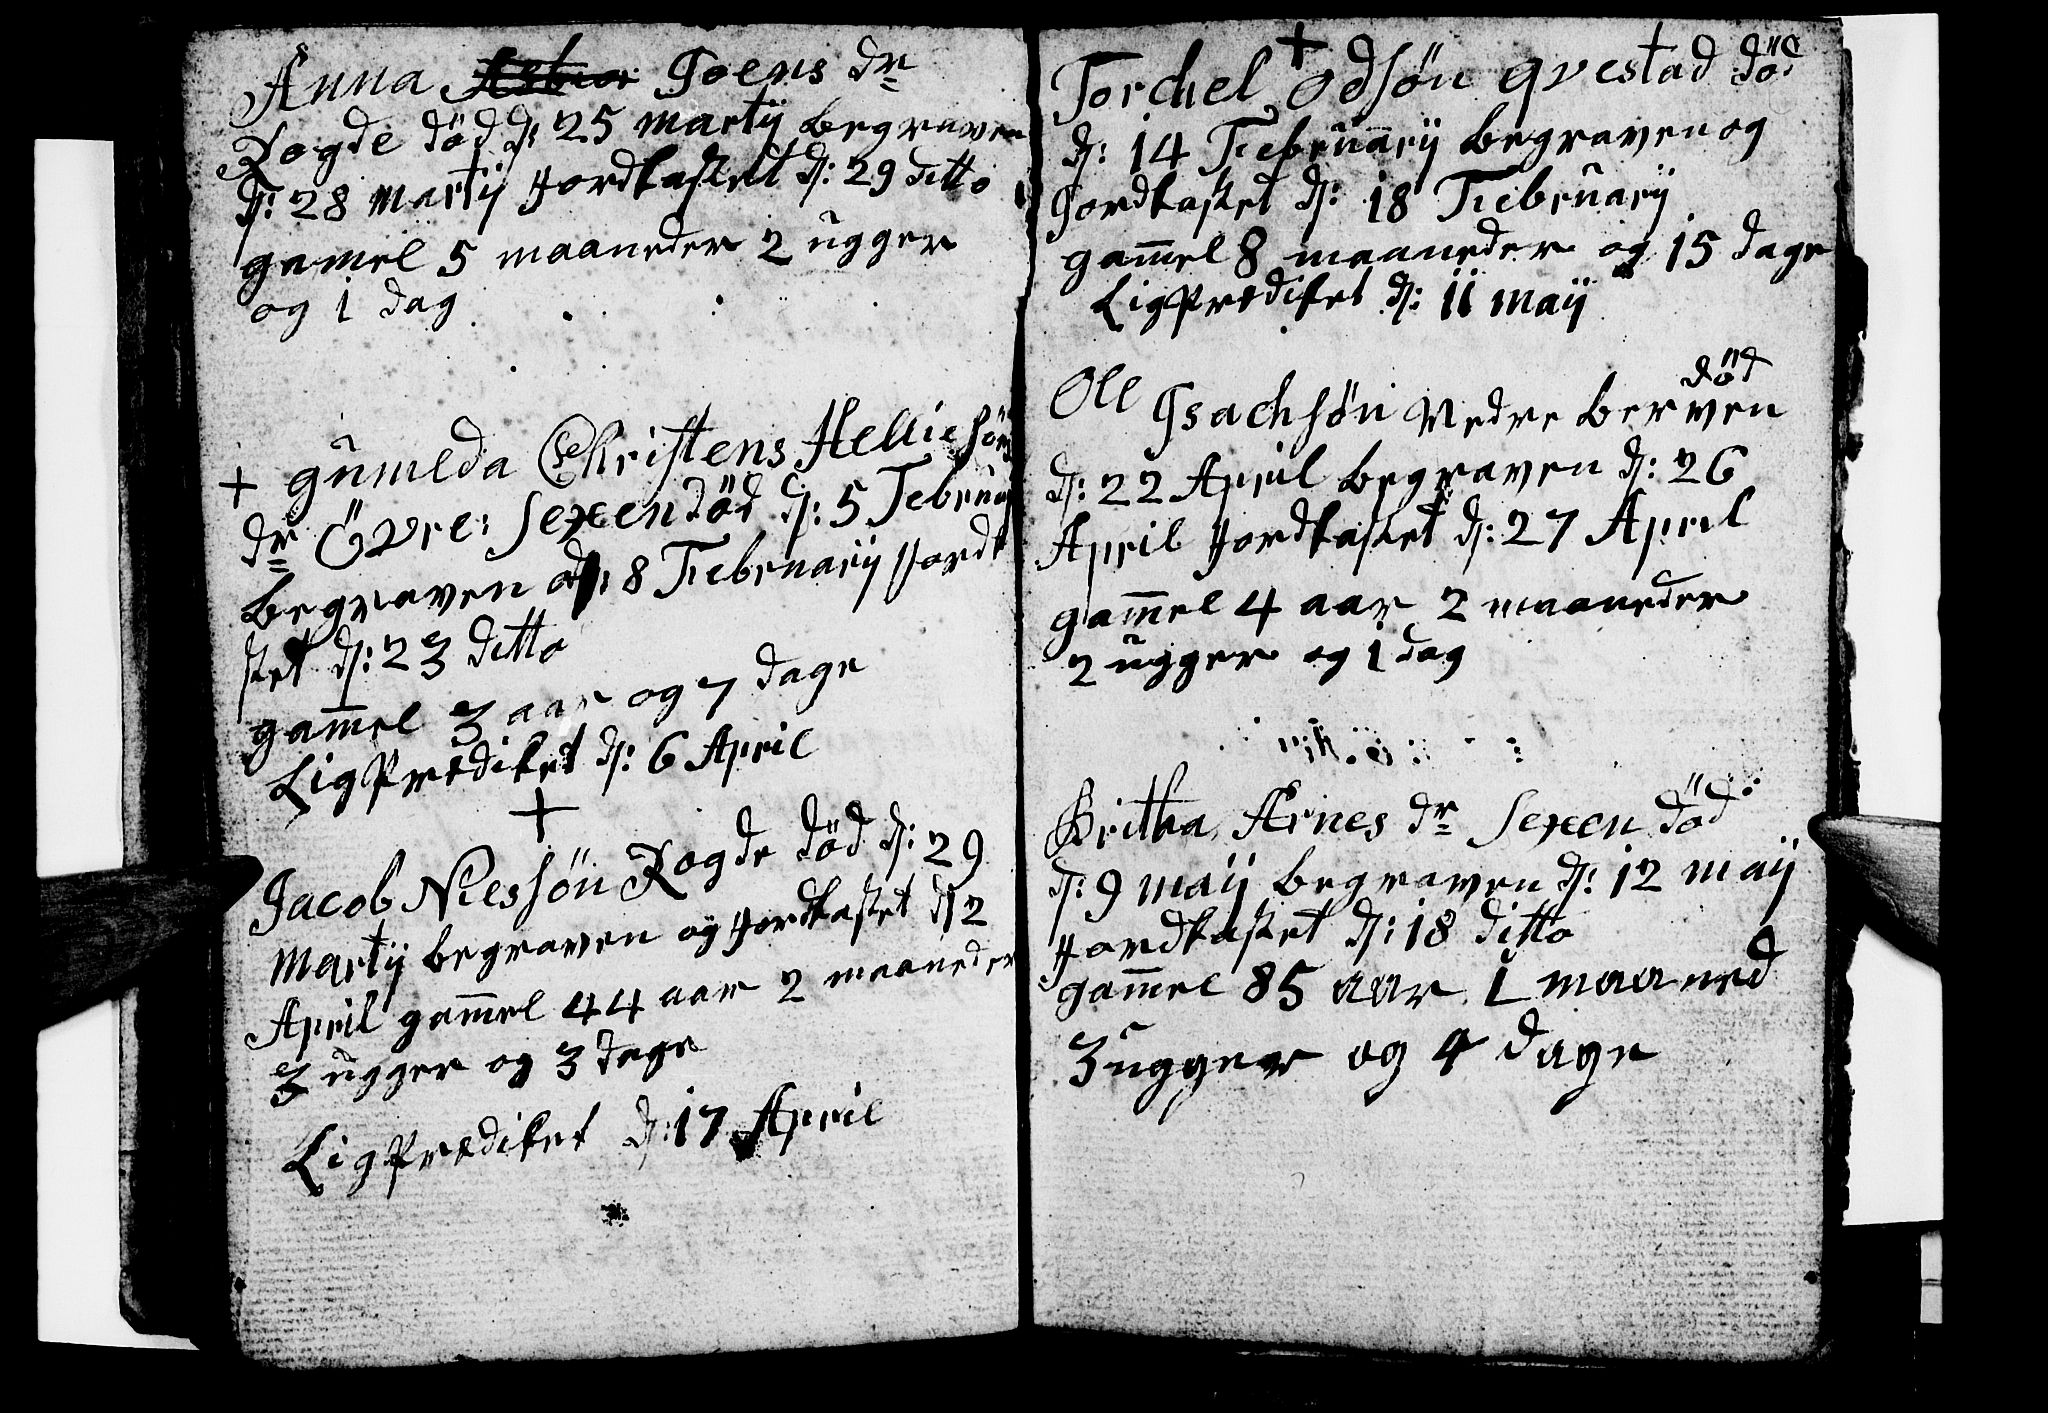 Anna Joens dr
Rogde död d: 25 martij begraven
d: 28 martij Jordkastet d: 29 ditto
gamel 5 maaneder 2 ugger
og 1 dag
+ gunilda Christens Hellie söns
dr Övre: Sexen död d: 5 Februa
begraven d: 8 Februarij Jordk
stet d: 23 ditto
gammel 3 aar og 7 dage
Lig Prediket d: 6 April
+
Jacob Nielssön Rogde död d: 29
Martij begraven og Jordkastet d 2
April gammel 44 aar 2 maaneder
3 ugger og 3 dage
Lig Prediket d: 17 April
+
Torchel Odsön qvestad död
d: 14 Februarij begraven og
Jordkastet d: 18 Februarij
gammel 8 maaneder og 15 dage
Lig Prediket d: 11 maij
Oll Isachsön Nedre Berven död
d: 22 April begraven d: 26
April Jordkastet d: 27 April
gammel 4 aar 2 maaneder
2 ugger og 1 dag
Britha Arnes dr Sexen död
d: 9 maij begraven d: 12 maij
Jordkastet d: 18 ditto
gammel 85 aar 1 maaned
3 ugger og 4 dage